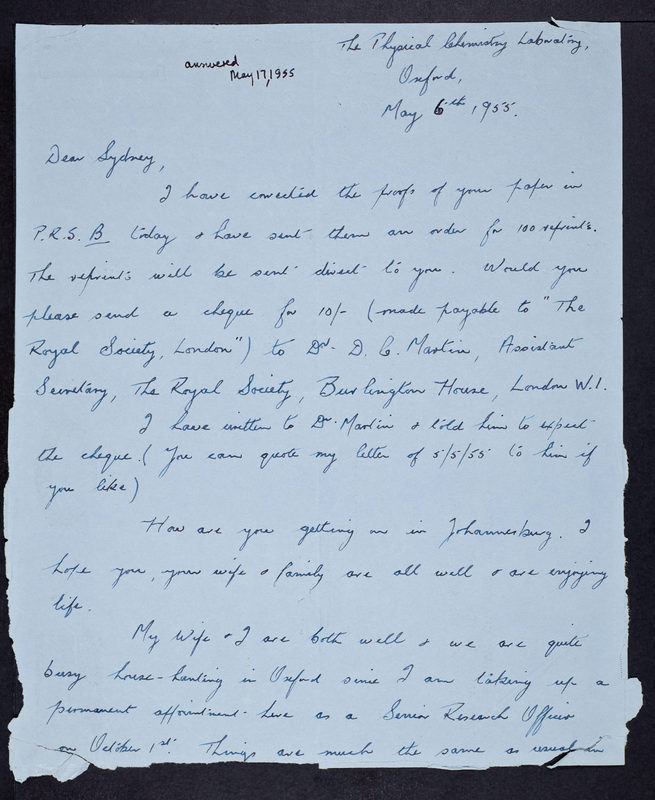 The Physical Chemistry Laboratory,
answered
May 17, 1955
Oxford,
May 6th, 1955.
Dear Sydney,
I have corrected the proofs of your paper in
P.R.S. B today & have sent them an order for 100 reprints.
The reprints will be sent direct to you. Would you
please send a cheque for 10/- (made payable to "The
Royal Society, London") to Dr. D. C. Martin, Assistant
Secretary, The Royal Society, Burlington House, London W.1.
I have written to Dr. Martin & told him to expect
the cheque. (You can quote my letter of 5/5/55 to him if
you like)
How are you getting on in Johannesburg. I
hope you, your wife & family are all well & are enjoying
life.
My Wife & I are both well & we are quite
busy house-hunting in Oxford since I am taking up a
permanent appointment here as a Senior Research Officer
on October 1st. Things are much the same as usual in